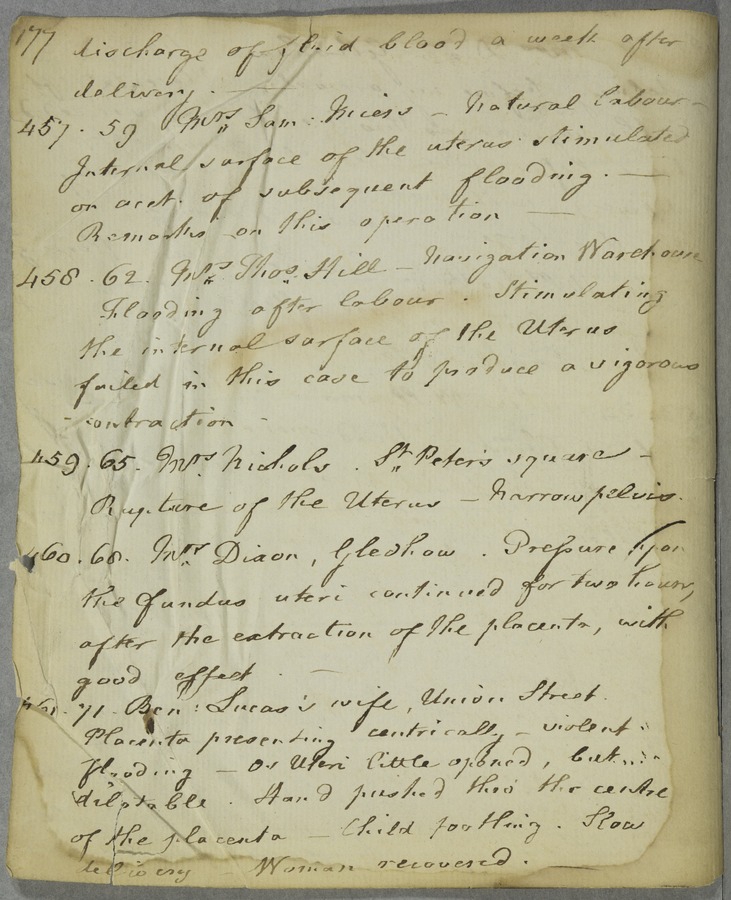 177 discharge of fluid blood a week after
delivery. —
457. 59 Mrs Sam: Miers – Natural labour –
Internal surface of the uterus stimulated
on acct. of subsequent flooding. —
Remarks on this operation —
458. 62. Mrs Thos. Hill – Navigation Warehouse
Flooding after labour. Stimulating
the internal surface of the Uterus
failed in this case to produce a vigorous
contraction –
459. 65. Mrs Nichols. St. Peter's square –
Rupture of the Uterus – Narrow pelvis.
460. 68. Mrs Dixon, Gledhow. Pressure upon
the fundus uteri continued for two hours,
after the extraction of the placenta, with
good effect. —
461. 71. Ben: Lucas's wife, Union Street.
Placenta presenting centrically – violent
flooding – Os Uteri little opened, but
dilatable. Hand pushed thro' the centre
of the placenta – Child footling. Slow
delivery – Woman recovered.